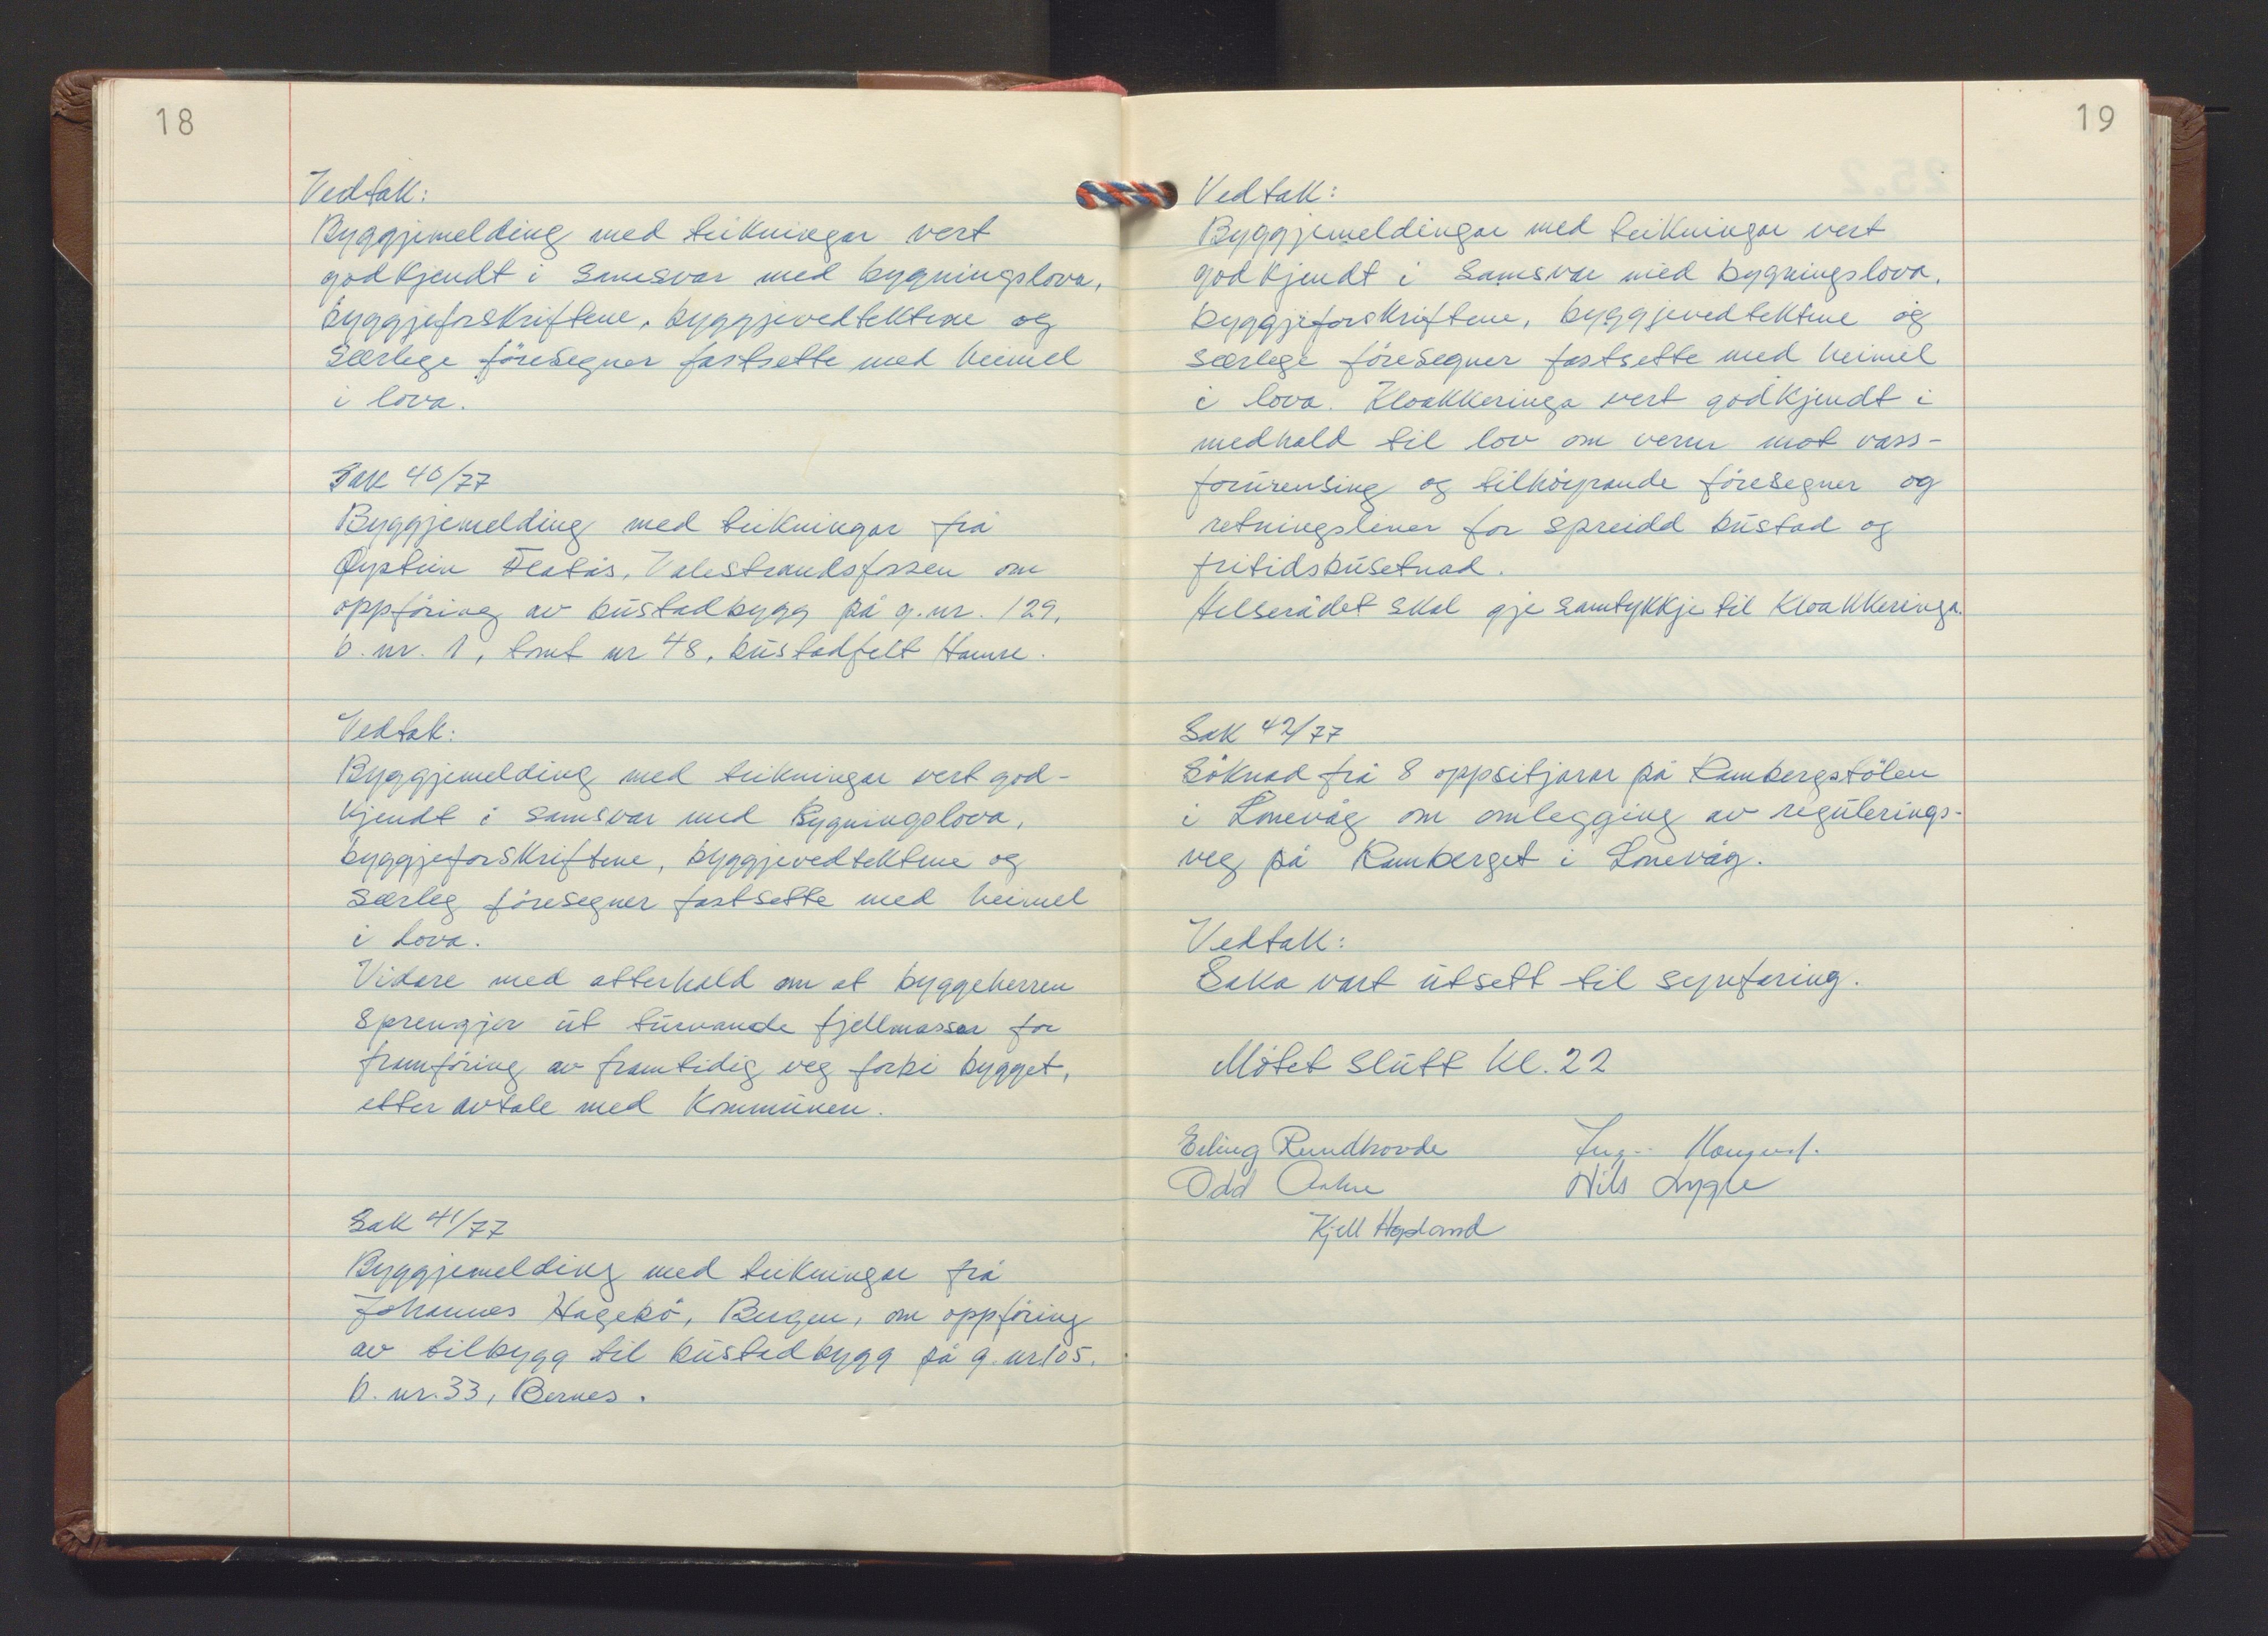 18
Vedtak:
Byggjemelding med teikningar vert
godkjendt i samsvar med bygningslova,
byggjeforskriftene, byggjevedtektene og
særlege föresegner fastsette med heimel
i lova.
Sak 40/77
Byggjemelding med teikningar frå
Øystein Flatås, Valestrandsfossen om
oppföring av bustadbygg på g.nr. 129,
b.nr. 1, tomt nr 48, bustadfelt Hamre.
Vedtak:
Byggjemelding med teikningar vert god-
kjendt i samsvar med Bygningslova,
byggjeforskriftene, byggjevedtektene og
særleg föresegner fastsette med heimel
i lova.
Vidare med atterhald om at byggeherren
sprengjer ut turvande fjellmassar for
framföring av framtidig veg forbi bygget,
etter avtale med Kommunen.
Sak 41/77
Byggjemelding med teikningar frå
Johannes Hagebö, Bergen, om oppföring
av tilbygg til bustadbygg på g.nr. 105,
b.nr. 33, Bernes.
19
Vedtak:
Byggjemeldingar med teikningar vert
godkjendt i samsvar med bygningslova,
byggjeforskriftene, byggjevedtektene og
særlege föresegner fastsette med heimel
i lova. Kloakkeringa vert godkjendt i
medhald til lov om vern mot vass-
forureinsing og tilhöyrande föresegner og
retningsliner for spreidd bustad og
fritidsbusetnad.
Helserådet skal gje samtykkje til Kloakkeringa.
Sak 42/77
Söknad frå 8 oppsitjarar på Rambergstölen
i Lonevåg om omlegging av regulerings-
veg på Ramberget i Lonevåg.
Vedtak:
Saka vart utsett til synfaring.
Mötet slutt kl. 22
Erling Rundhovde
Odd Aakre Nils Lygre
Kjell Hopland